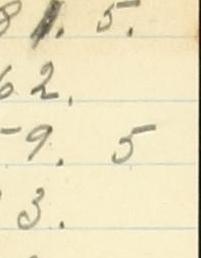 81. 5.
62.
59. 5
3.